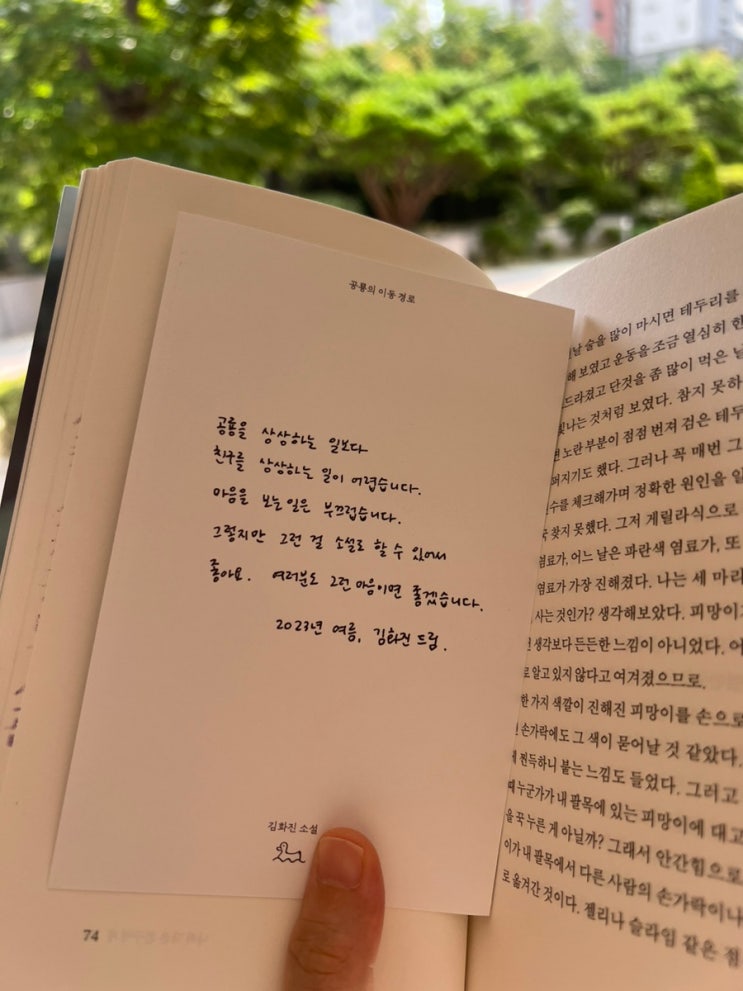 공룡의 이동 경로
공룡을 상상하는 일보다
친구를 상상하는 일이 어렵습니다.
마음을 보는 일은 부끄럽습니다.
그렇지만 그런 걸 소설로 할 수 있어서
좋아요. 여러분도 그런 마음이면 좋겠습니다.
2023년 여름, 김화진 드림.
김화진 소설
74
술을 많이 마시면 테두리를
보였고 운동을 조금 열심히
단것을 좀 많이 먹은
것처럼 보였다. 참지
노란 부분이 점점 번져 검은
했다. 그러나 꼭 매번 그
체크해가며 정확한 원인을
찾지 못했다. 그저 게릴라식으로
염료가, 어느 날은 파란색 염료가, 또
염료가 가장 진해졌다. 나는 세
사는 것인가? 생각해보았다.
생각보다 든든한 느낌이 아니었다.
알고 있지 않다고 여겨졌으므로.
한 가지 색깔이 진해진 피망이를 손으로
손가락에도 그 색이 묻어날 것 같았다.
찐득하니 붙는 느낌도 들었다. 그러고
누군가가 내 팔목에 있는 피망이에 대고
꾹 누른 게 아닐까? 그래서 안간힘으로
내 팔목에서 다른 사람의 손가락이나
옮겨간 것이다. 젤리나 슬라임 같은 점